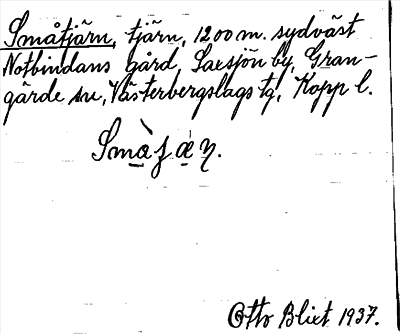 Småtjärn, tjärn, 1200 m. sydväst
Notbindans gård, Saxsjön by, Gran-
gärde sn, Västerbergslags tg, Kopp l.
Smàʃæ̀ɳ.
Otto Blixt 1937.